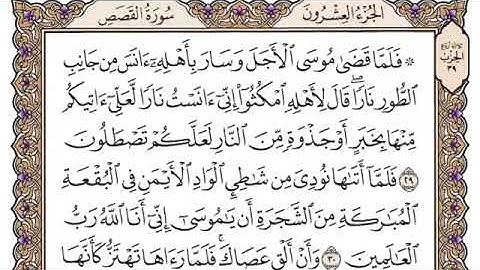 سُورَةُ الْقَصَصِ
الجُزْءُ العِشْرُونَ
۞ فَلَمَّا قَضَىٰ مُوسَى ٱلْأَجَلَ وَسَارَ بِأَهْلِهِۦٓ ءَانَسَ مِن جَانِبِ
ٱلطُّورِ نَارًاۖ قَالَ لِأَهْلِهِ ٱمْكُثُوٓا۟ إِنِّىٓ ءَانَسْتُ نَارًا لَّعَلِّىٓ ءَاتِيكُم
مِّنْهَا بِخَبَرٍ أَوْ جَذْوَةٍ مِّنَ ٱلنَّارِ لَعَلَّكُمْ تَصْطَلُونَ
٢٩ فَلَمَّآ أَتَىٰهَا نُودِىَ مِن شَٰطِئِ ٱلْوَادِ ٱلْأَيْمَنِ فِى ٱلْبُقْعَةِ
ٱلْمُبَٰرَكَةِ مِنَ ٱلشَّجَرَةِ أَن يَٰمُوسَىٰٓ إِنِّىٓ أَنَا ٱللَّهُ رَبُّ
ٱلْعَٰلَمِينَ ٣٠ وَأَنْ أَلْقِ عَصَاكَۖ فَلَمَّا رَءَاهَا تَهْتَزُّ كَأَنَّهَا
الحِزْب
٣٩